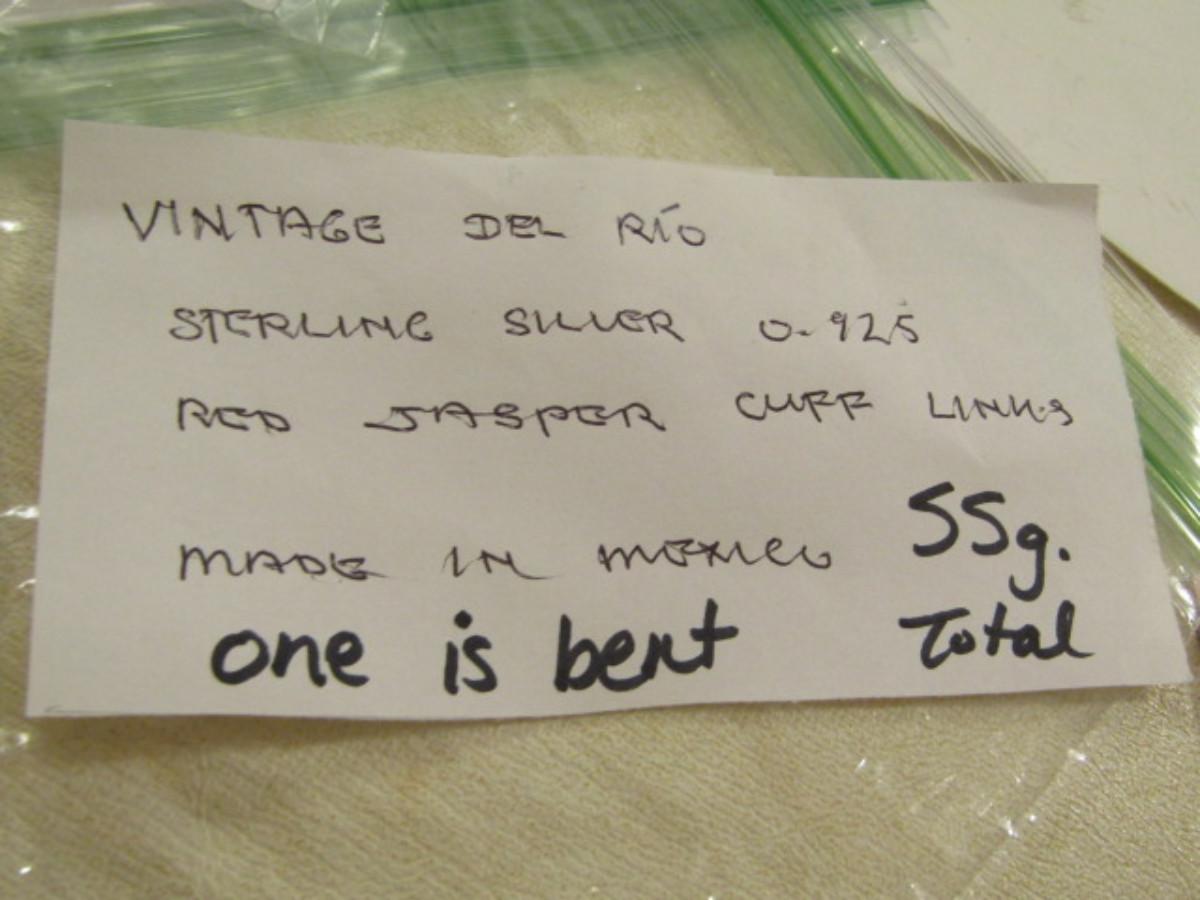 VINTAGE DEL RÍO
STERLING SILVER 0.925
RED JASPER CUFF LINKS
MADE IN MEXICO 55g.
one is bent Total